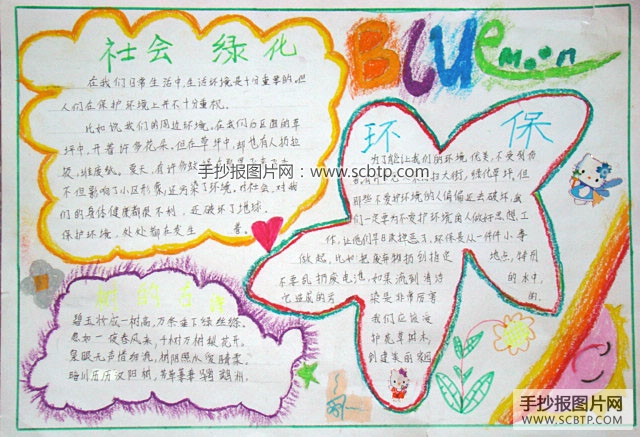 社会 绿化
在我们日常生活中,生活环境是十分重要的。但
人们在保护环境上并不十分重视。
比如说,我们的周边环境。在我们小区里的草
坪中,开着许多花朵。但在草坪中,却也有人扔垃
圾
不但影响了小区形象,还污染了环境。对社会、对我
们的身体健康都很不利,还破坏了地球。
保护环境,处处都在发生
BLUe moon
环保
为了能让我们的环境优美,不受
那些不爱护环境的人偏偏还去破坏。我
们一定要向不爱护环境的人做好思想工
作,让他们早日改掉恶习。环保是从一件件小事
做起,比如把废弃物扔到指定 地点,特别
不要乱扔废电池,如果流到清洁 的水中,
它造成的污 染是非常厉害 的。
我们应该说
护花草树木,
创建美丽家园
树的古诗
碧玉妆成一树高,万条垂下绿丝绦。
忽如一夜春风来,千树万树梨花开。
泉眼无声惜细流,树阴照水爱晴柔。
晴川历历汉阳树,芳草萋萋鹦鹉洲。
手抄报图片网:www.scbtp.com
手抄报图片网
WWW.SCBTP.COM